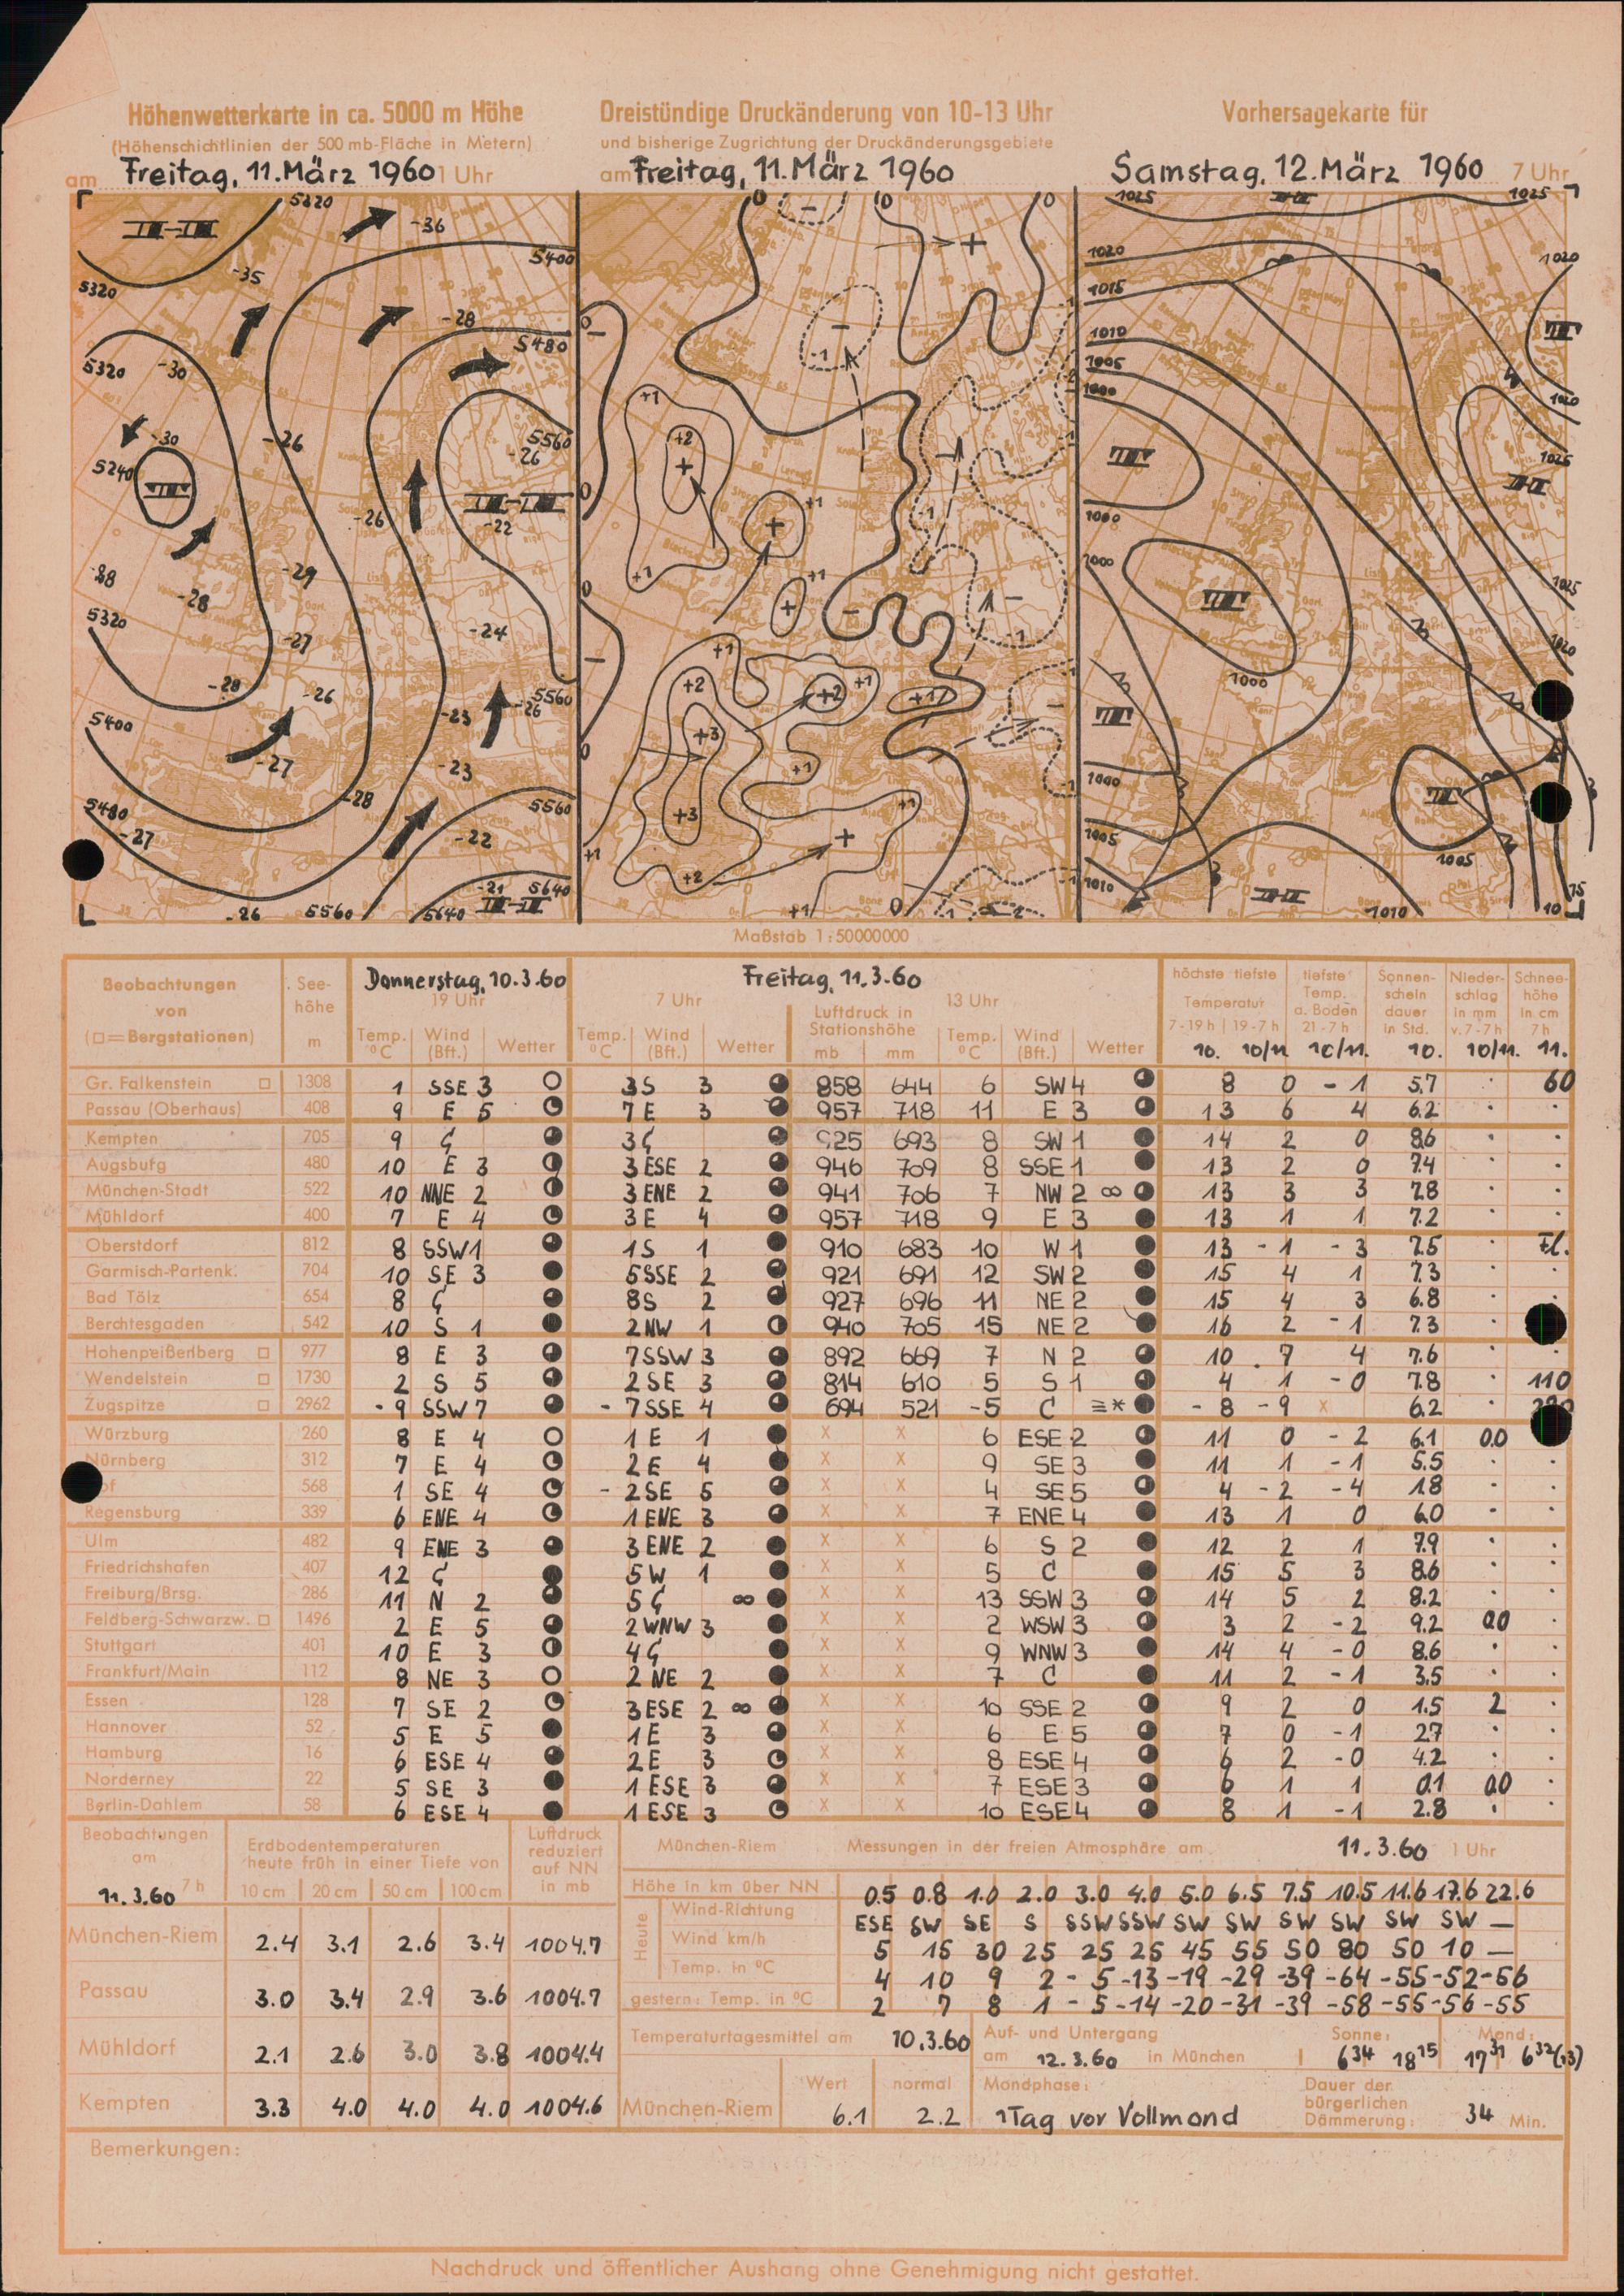 Höhenwetterkarte in ca. 5000 m Höhe
(Höhenschichtlinien der 500 mb-Fläche in Metern)
am Freitag, 11. März 1960 1 Uhr
Dreistündige Druckänderung von 10-13 Uhr
und bisherige Zugrichtung der Druckänderungsgebiete
am Freitag, 11. März 1960
Vorhersagekarte für
Samstag, 12. März 1960 7 Uhr
5320 -36 5400
5320 -35
-28 5480
5320 -30
-30 -26 5560
5240 -26
-26 -22
-28 -29
-28
5320 -27 -24
-28 -26 5560
5400 -23 -26
-27 -23
-28 5560
5480 -27 -22
-21 5640
-26 5560 5640
0 0 0
+
-1
+1
+2
+1
+1 +1
-1
+1
+2 +2 +1 +1
+3
+1
+3 +1
+1 +2 +
+1 0 -1 -2
1025 1025
1020 1020
1015
1010
1005
1000 1020
1025
1000
1000 1025
1020
1000
1000
1005 1005
1010 1010 10 15
Maßstab 1:50000000
Beobachtungen von (□=Bergstationen) See-höhe m Donnerstag, 10.3.60 Freitag, 11.3.60
19 Uhr 7 Uhr 13 Uhr
Temp. °C Wind (Bft.) Wetter Temp. °C Wind (Bft.) Wetter Luftdruck in Stationshöhe mb mm Temp. °C Wind (Bft.) Wetter
höchste tiefste Temperatur 7-19h 19-7h tiefste Temp. a. Boden 21-7h Sonnen-schein dauer in Std. Nieder-schlag in mm v.7-7h Schnee-höhe in cm 7h
10. 10/11 10/11. 10. 10/11. 11.
Gr. Falkenstein □ 1308 1 SSE 3 3 S 3 858 644 6 SW 4 8 0 -1 5.7 . 60
Passau (Oberhaus) 408 9 E 5 7 E 3 957 718 11 E 3 13 6 4 6.2 . .
Kempten 705 9 C 3 C 925 693 8 SW 1 14 2 0 8.6 . .
Augsburg 480 10 E 3 3 ESE 2 946 709 8 SSE 1 13 2 0 7.4 . .
München-Stadt 522 10 NNE 2 3 ENE 2 941 706 7 NW 2 ∞ 13 3 3 7.8 . .
Mühldorf 400 7 E 4 3 E 4 957 718 9 E 3 13 1 1 7.2 . .
Oberstdorf 812 8 SSW 1 1 S 1 910 683 10 W 1 13 -1 -3 7.5 . Fl.
Garmisch-Partenk. 704 10 SE 3 5 SSE 2 921 691 12 SW 2 15 4 1 7.3 . .
Bad Tölz 654 8 C 8 S 2 927 696 11 NE 2 15 4 3 6.8 . .
Berchtesgaden 542 10 S 1 2 NW 1 940 705 15 NE 2 16 2 -1 7.3 .
Hohenpeißenberg □ 977 8 E 3 7 SSW 3 892 669 7 N 2 10 7 4 7.6 . .
Wendelstein □ 1730 2 S 5 2 SE 3 814 610 5 S 1 4 1 -0 7.8 . 110
Zugspitze □ 2962 -9 SSW 7 -7 SSE 4 694 521 -5 C ≡* -8 -9 x 6.2 .
Würzburg 260 8 E 4 1 E 1 x x 6 ESE 2 11 0 -2 6.1 0.0 .
Nürnberg 312 7 E 4 2 E 4 x x 9 SE 3 11 1 -1 5.5 . .
of 568 1 SE 4 -2 SE 5 x x 4 SE 5 4 -2 -4 1.8 . .
Regensburg 339 6 ENE 4 1 ENE 3 x x 7 ENE 4 13 1 0 6.0 . .
Ulm 482 9 ENE 3 3 ENE 2 x x 6 S 2 12 2 1 7.9 . .
Friedrichshafen 407 12 C 5 W 1 x x 5 C 15 5 3 8.6 . .
Freiburg/Brsg. 286 11 N 2 5 C ∞ x x 13 SSW 3 14 5 2 8.2 . .
Feldberg-Schwarzw. □ 1496 2 E 5 2 WNW 3 x x 2 WSW 3 3 2 -2 9.2 0.0 .
Stuttgart 401 10 E 3 4 C x x 9 WNW 3 14 4 -0 8.6 . .
Frankfurt/Main 112 8 NE 3 2 NE 2 x x 7 C 11 2 -1 3.5 . .
Essen 128 7 SE 2 3 ESE 2 ∞ x x 10 SSE 2 9 2 0 1.5 2 .
Hannover 52 5 E 5 1 E 3 x x 6 E 5 7 0 -1 2.7 . .
Hamburg 16 6 ESE 4 2 E 3 x x 8 ESE 4 6 2 -0 4.2 . .
Norderney 22 5 SE 3 1 ESE 3 x x 7 ESE 3 6 1 1 0.1 0.0 .
Berlin-Dahlem 58 6 ESE 4 1 ESE 3 x x 10 ESE 4 8 1 -1 2.8 . .
Beobachtungen am 11.3.60 7h
Erdbodentemperaturen heute früh in einer Tiefe von
10 cm 20 cm 50 cm 100 cm
Luftdruck reduziert auf NN in mb
München-Riem 2.4 3.1 2.6 3.4 1004.7
Passau 3.0 3.4 2.9 3.6 1004.7
Mühldorf 2.1 2.6 3.0 3.8 1004.4
Kempten 3.3 4.0 4.0 4.0 1004.6
München-Riem Messungen in der freien Atmosphäre am 11.3.60 1 Uhr
Höhe in km über NN 0.5 0.8 1.0 2.0 3.0 4.0 5.0 6.5 7.5 10.5 11.6 17.6 22.6
Heute Wind-Richtung ESE SW SE S SSW SSW SW SW SW SW SW SW —
Wind km/h 5 15 30 25 25 25 45 55 50 80 50 10 —
Temp. in °C 4 10 9 2 -5 -13 -19 -29 -39 -64 -55 -52 -56
gestern: Temp. in °C 2 7 8 1 -5 -14 -20 -31 -39 -58 -55 -56 -55
Temperaturtagesmittel am 10.3.60
Wert normal
München-Riem 6.1 2.2
Auf- und Untergang am 12.3.60 in München
Sonne: 6 34 18 15 Mond: 17 31 6 32 (13)
Mondphase: 1 Tag vor Vollmond
Dauer der bürgerlichen Dämmerung: 34 Min.
Bemerkungen:
Nachdruck und öffentlicher Aushang ohne Genehmigung nicht gestattet.